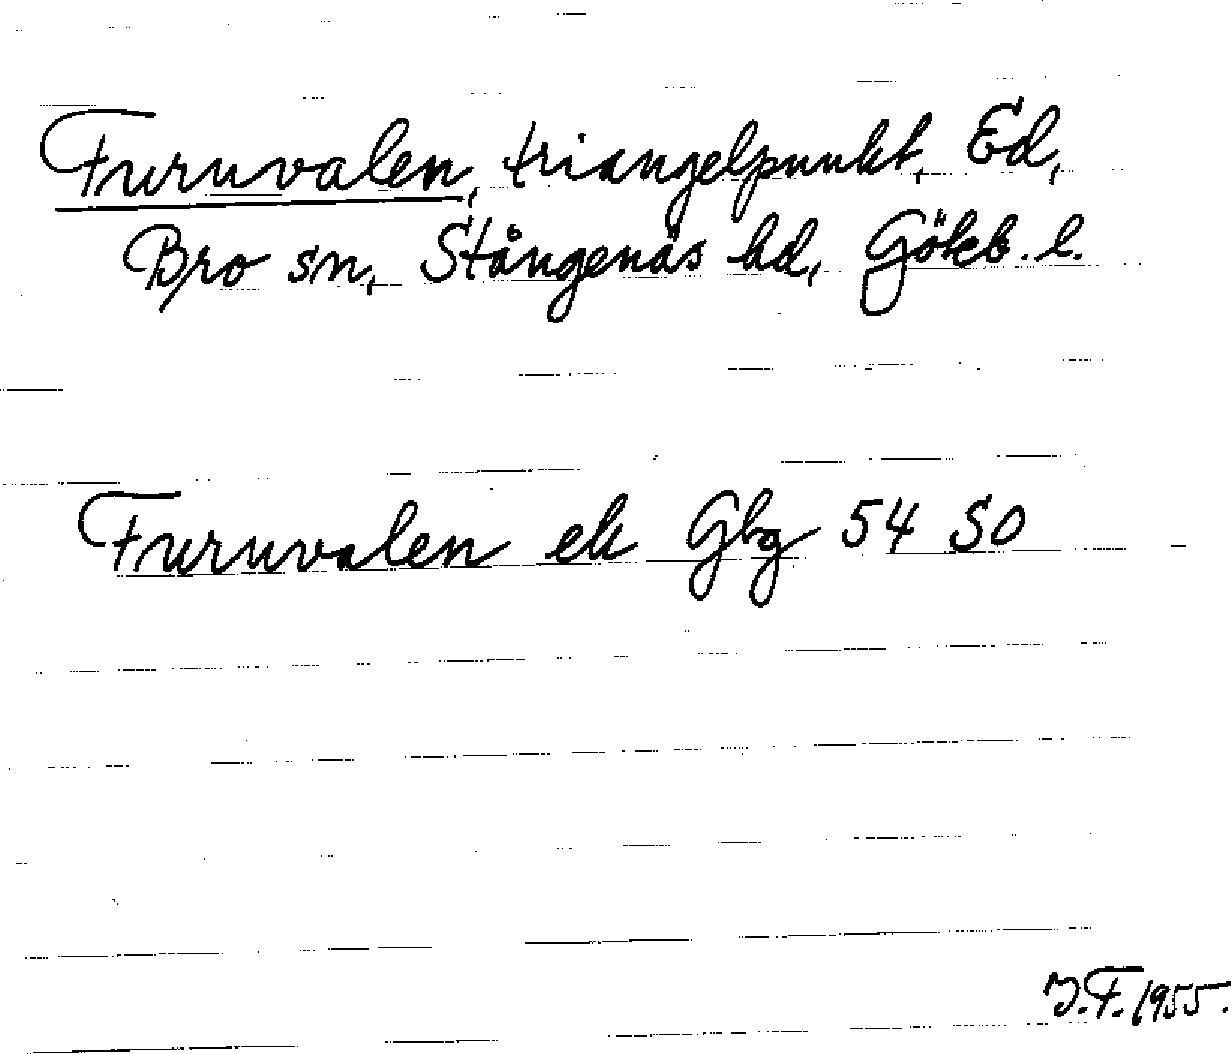 Furuvalen, triangelpunkt, Ed,
Bro sn, Stångenäs hd, Göteb. l.
Furuvalen ek Gbg 54 SO
J.F. 1955.